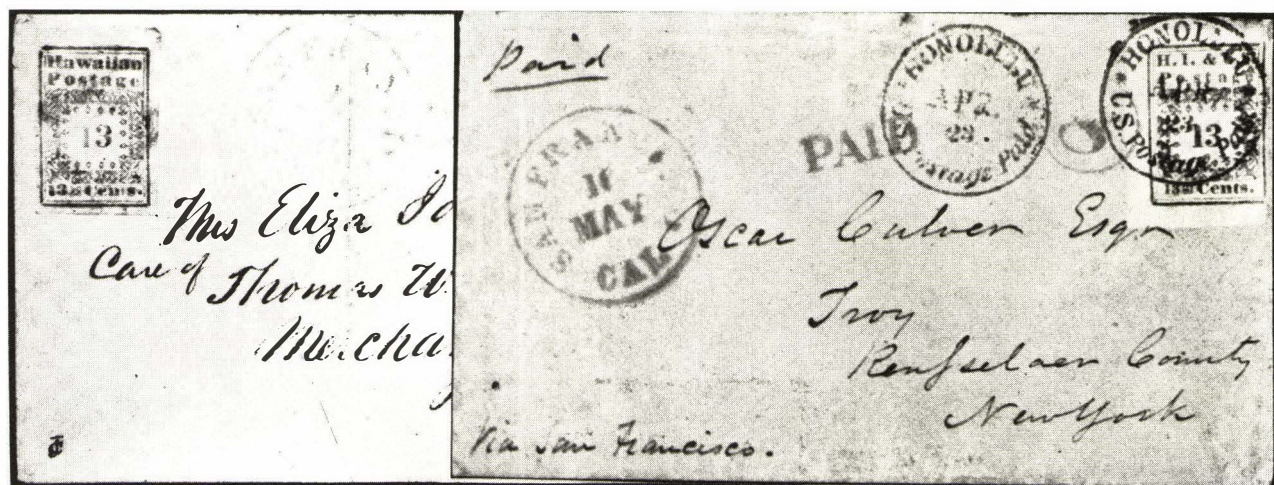 Hawaiian
Postage
13
13 Cents.
Mrs Eliza
Care of
Thomas W
Mercha
Paid
SAN FRAN
16
MAY
CAL.
PAID
HONOLULU
US Postage Paid
APR.
23.
HONOLULU
US Postage Paid
APR
23
H.I. & U.S.
Postage
13
13 Cents.
Oscar Culver Esqr
Troy
Rensselaer County
New York
Via San Francisco.